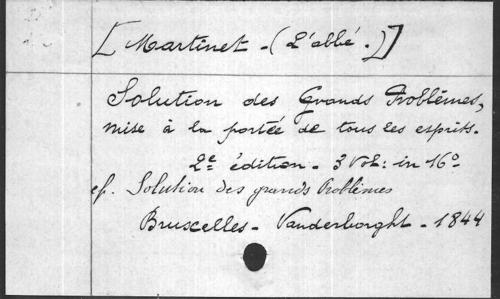 [Martinet - (L'abbé.)]
Solution des Grands Problèmes,
mise à la portée de tous les esprits.
2e édition - 3 Vol: in 16°
cf. Solution des grands Problèmes
Bruxelles - Vanderborght - 1844